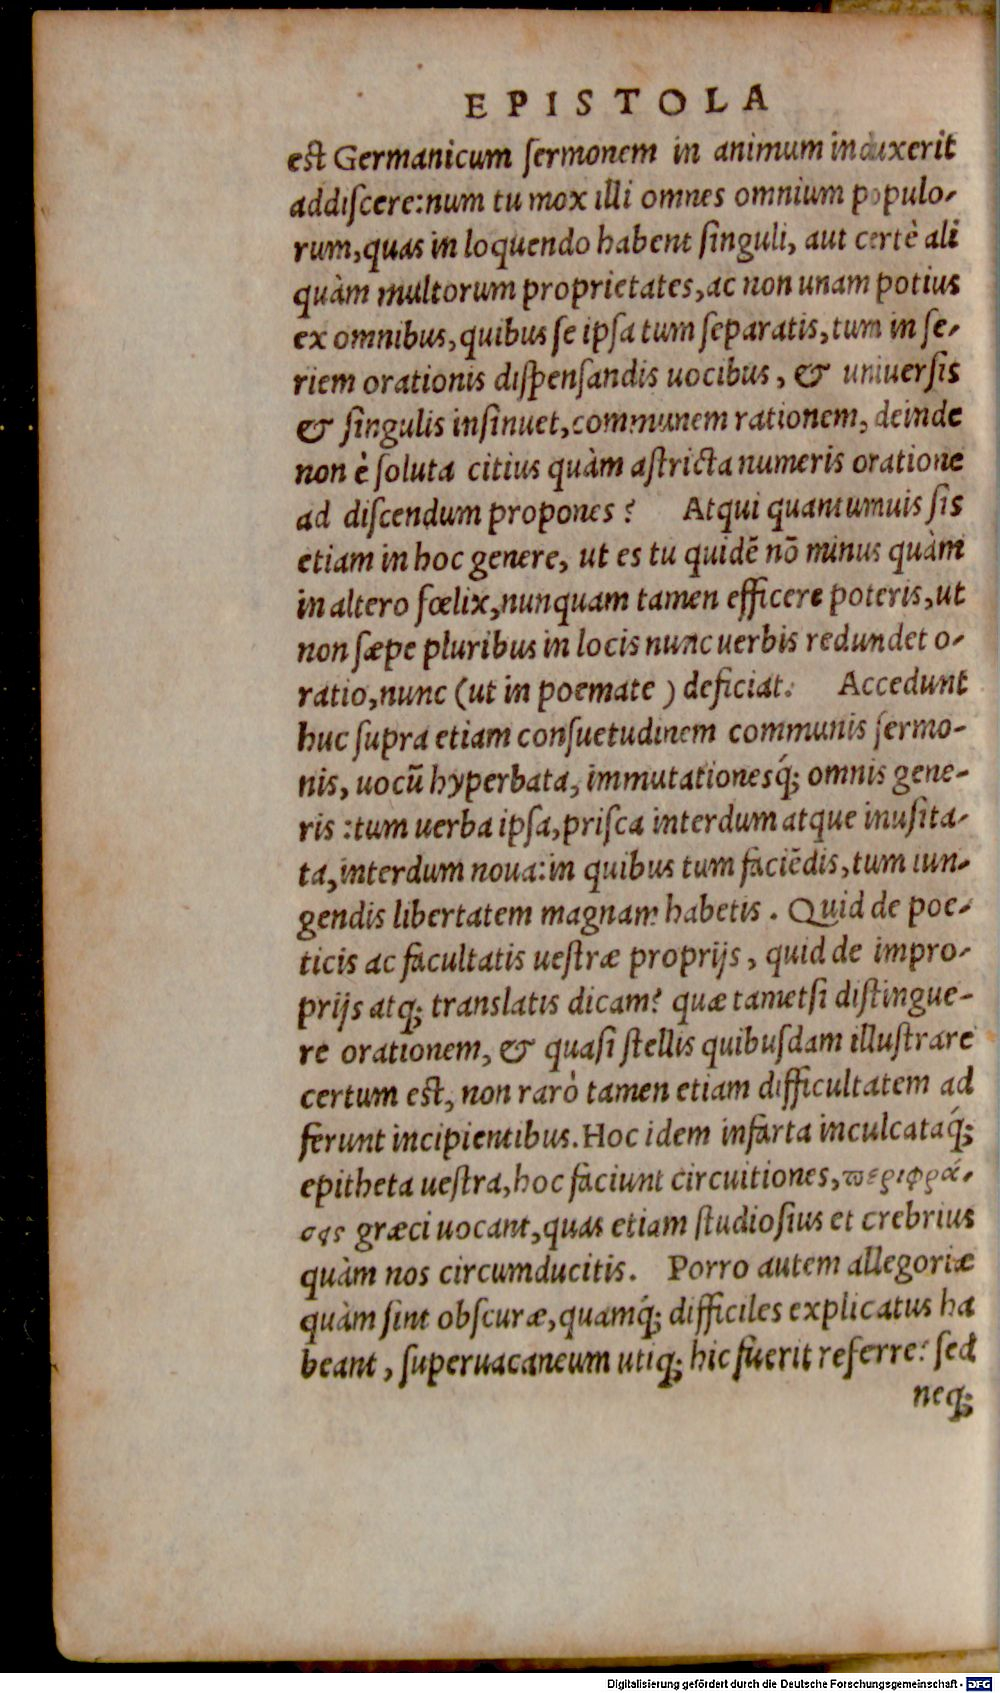 EPISTOLA
est Germanicum sermonem in animum induxerit
addiscere: num tu mox illi omnes omnium populo-
rum, quas in loquendo habent singuli, aut certè ali
quàm multorum proprietates, ac non unam potius
ex omnibus, quibus se ipsa tum separatis, tum in se-
riem orationis dispensandis uocibus, & uniuersis
& singulis insinuet, communem rationem, deinde
non è soluta citius quàm astricta numeris oratione
ad discendum propones? Atqui quantumuis sis
etiam in hoc genere, ut es tu quidē nō minus quàm
in altero fœlix, nunquam tamen efficere poteris, ut
non sæpe pluribus in locis nunc uerbis redundet o-
ratio, nunc (ut in poemate) deficiat. Accedunt
huc supra etiam consuetudinem communis sermo-
nis, uocū hyperbata, immutationesq́; omnis gene-
ris: tum uerba ipsa, prisca interdum atque inusita-
ta, interdum noua: in quibus tum faciēdis, tum iun-
gendis libertatem magnam habetis. Quid de poe-
ticis ac facultatis uestræ proprijs, quid de impro-
prijs atq; translatis dicam? quæ tametsi distingue-
re orationem, & quasi stellis quibusdam illustrare
certum est, non rarò tamen etiam difficultatem ad
ferunt incipientibus. Hoc idem infarta inculcataq́;
epitheta uestra, hoc faciunt circuitiones, ϖεριφρά-
σεις græci uocant, quas etiam studiosius et crebrius
quàm nos circumducitis. Porro autem allegoriæ
quàm sint obscuræ, quamq́; difficiles explicatus ha
beant, superuacaneum utiq; hic fuerit referre: sed
neq;
Digitalisierung gefördert durch die Deutsche Forschungsgemeinschaft - DFG